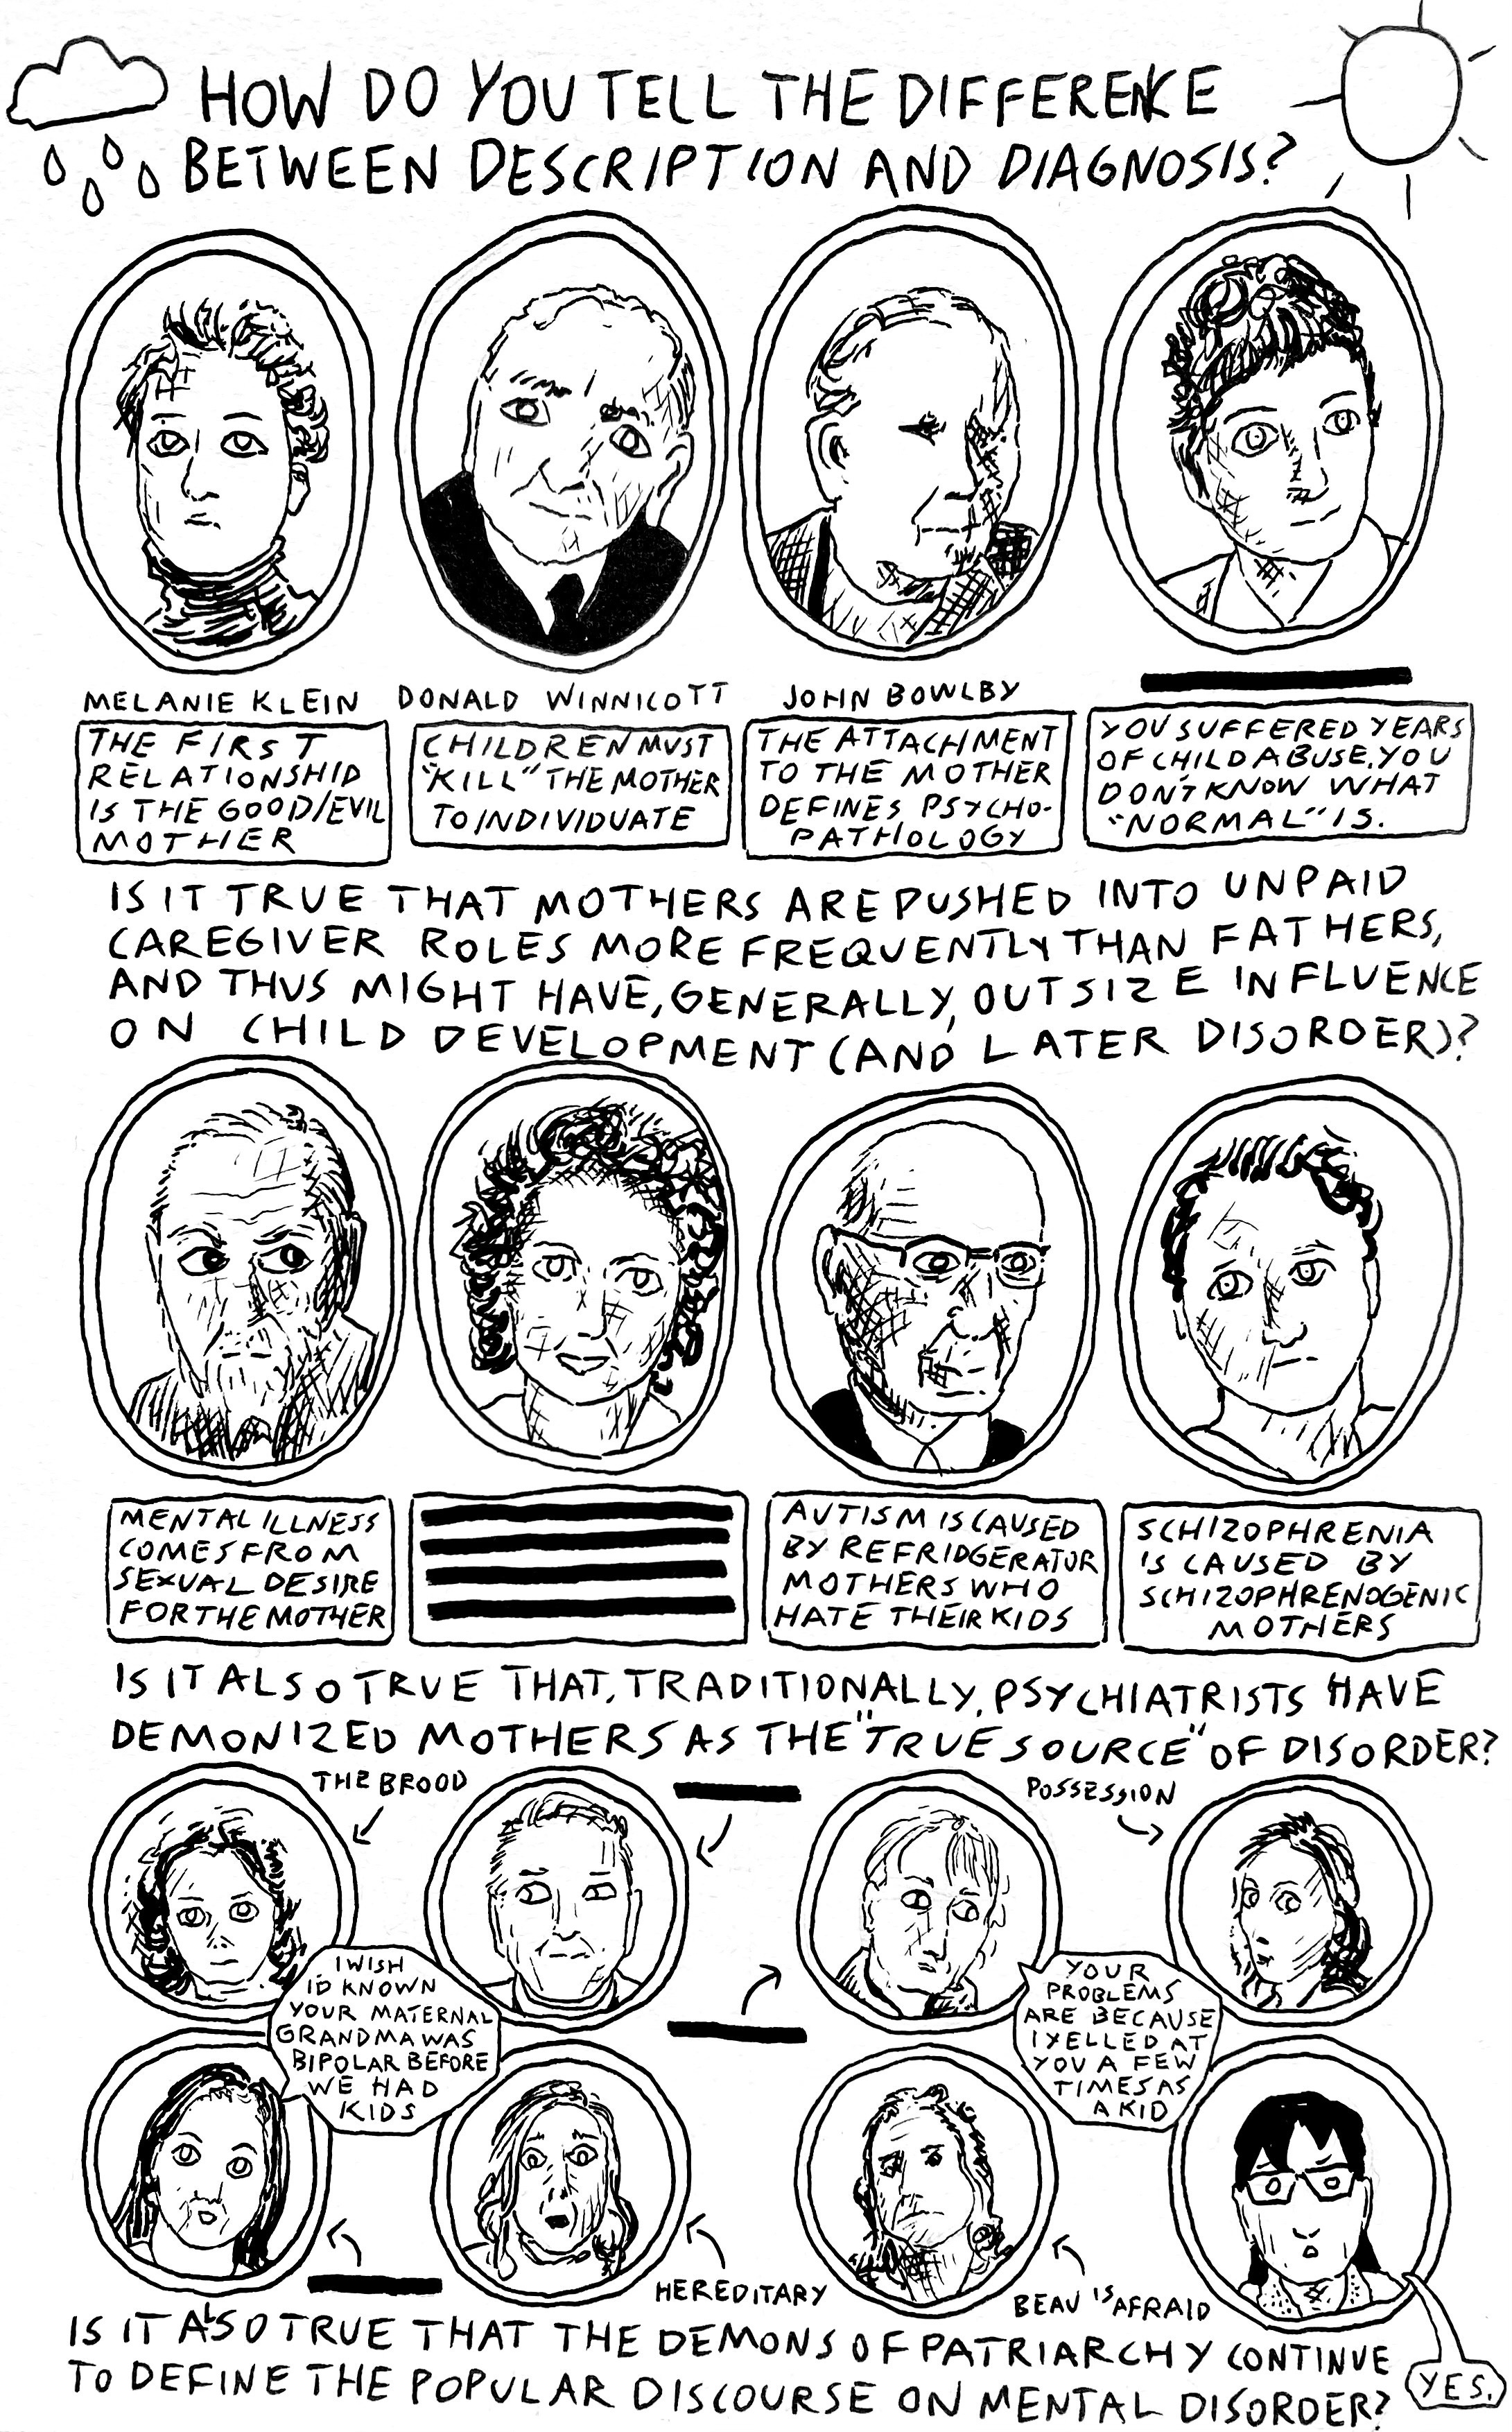 HOW DO YOU TELL THE DIFFERENCE
BETWEEN DESCRIPTION AND DIAGNOSIS?
MELANIE KLEIN
THE FIRST
RELATIONSHIP
IS THE GOOD/EVIL
MOTHER
DONALD WINNICOTT
CHILDREN MUST
"KILL" THE MOTHER
TO INDIVIDUATE
JOHN BOWLBY
THE ATTACHMENT
TO THE MOTHER
DEFINES PSYCHO-
PATHOLOGY
YOU SUFFERED YEARS
OF CHILD ABUSE. YOU
DON'T KNOW WHAT
"NORMAL" IS.
IS IT TRUE THAT MOTHERS ARE PUSHED INTO UNPAID
CAREGIVER ROLES MORE FREQUENTLY THAN FATHERS,
AND THUS MIGHT HAVE, GENERALLY, OUTSIZE INFLUENCE
ON CHILD DEVELOPMENT (AND LATER DISORDER)?
MENTAL ILLNESS
COMES FROM
SEXUAL DESIRE
FOR THE MOTHER
AUTISM IS CAUSED
BY REFRIDGERATOR
MOTHERS WHO
HATE THEIR KIDS
SCHIZOPHRENIA
IS CAUSED BY
SCHIZOPHRENOGENIC
MOTHERS
IS IT ALSO TRUE THAT, TRADITIONALLY, PSYCHIATRISTS HAVE
DEMONIZED MOTHERS AS THE "TRUE SOURCE" OF DISORDER?
THE BROOD
POSSESSION
I WISH
I'D KNOWN
YOUR MATERNAL
GRANDMA WAS
BIPOLAR BEFORE
WE HAD
KIDS
YOUR
PROBLEMS
ARE BECAUSE
I YELLED AT
YOU A FEW
TIMES AS
A KID
HEREDITARY
BEAU IS AFRAID
IS IT ALSO TRUE THAT THE DEMONS OF PATRIARCHY CONTINUE
TO DEFINE THE POPULAR DISCOURSE ON MENTAL DISORDER?
YES.